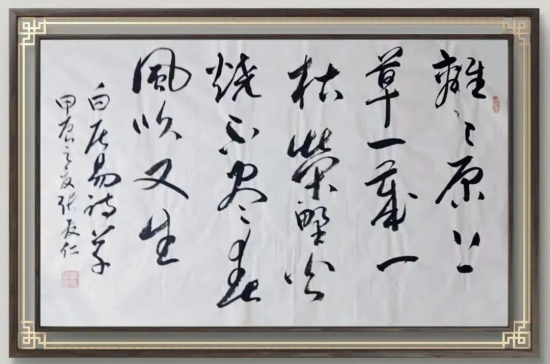 離々原上
草一歲一
枯榮野火
燒不盡春
風吹又生
白居易詩草
甲辰之夏張友仁